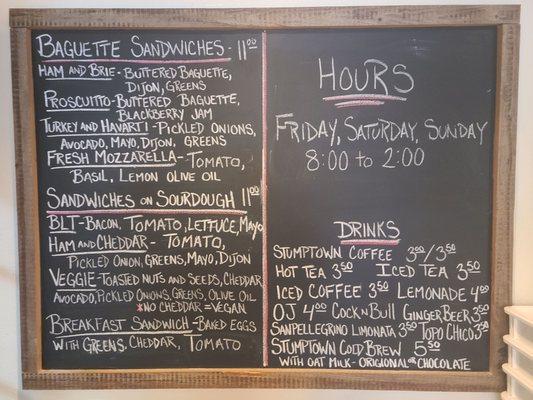 BAGUETTE SANDWICHES - 11.00
HAM AND BRIE - BUTTERED BAGUETTE,
DIJON, GREENS
PROSCUITTO - BUTTERED BAGUETTE,
BLACKBERRY JAM
TURKEY AND HAVARTI - PICKLED ONIONS,
AVOCADO, MAYO, DIJON, GREENS
FRESH MOZZARELLA - TOMATO,
BASIL, LEMON OLIVE OIL
SANDWICHES ON SOURDOUGH 11.00
BLT - BACON, TOMATO, LETTUCE, MAYO
HAM AND CHEDDAR - TOMATO,
PICKLED ONION, GREENS, MAYO, DIJON
VEGGIE - TOASTED NUTS AND SEEDS, CHEDDAR
AVOCADO, PICKLED ONIONS, GREENS, OLIVE OIL
*NO CHEDDAR = VEGAN
BREAKFAST SANDWICH - BAKED EGGS
WITH GREENS, CHEDDAR, TOMATO
HOURS
FRIDAY, SATURDAY, SUNDAY
8:00 TO 2:00
DRINKS
STUMPTOWN COFFEE 3.00/3.50
HOT TEA 3.50 ICED TEA 3.50
ICED COFFEE 3.50 LEMONADE 4.00
OJ 4.00 COCK N BULL GINGER BEER 3.50
SANPELLEGRINO LIMONATA 3.50 TOPO CHICO 3.50
STUMPTOWN COLD BREW 5.50
WITH OAT MILK - ORIGIONAL OR CHOCOLATE